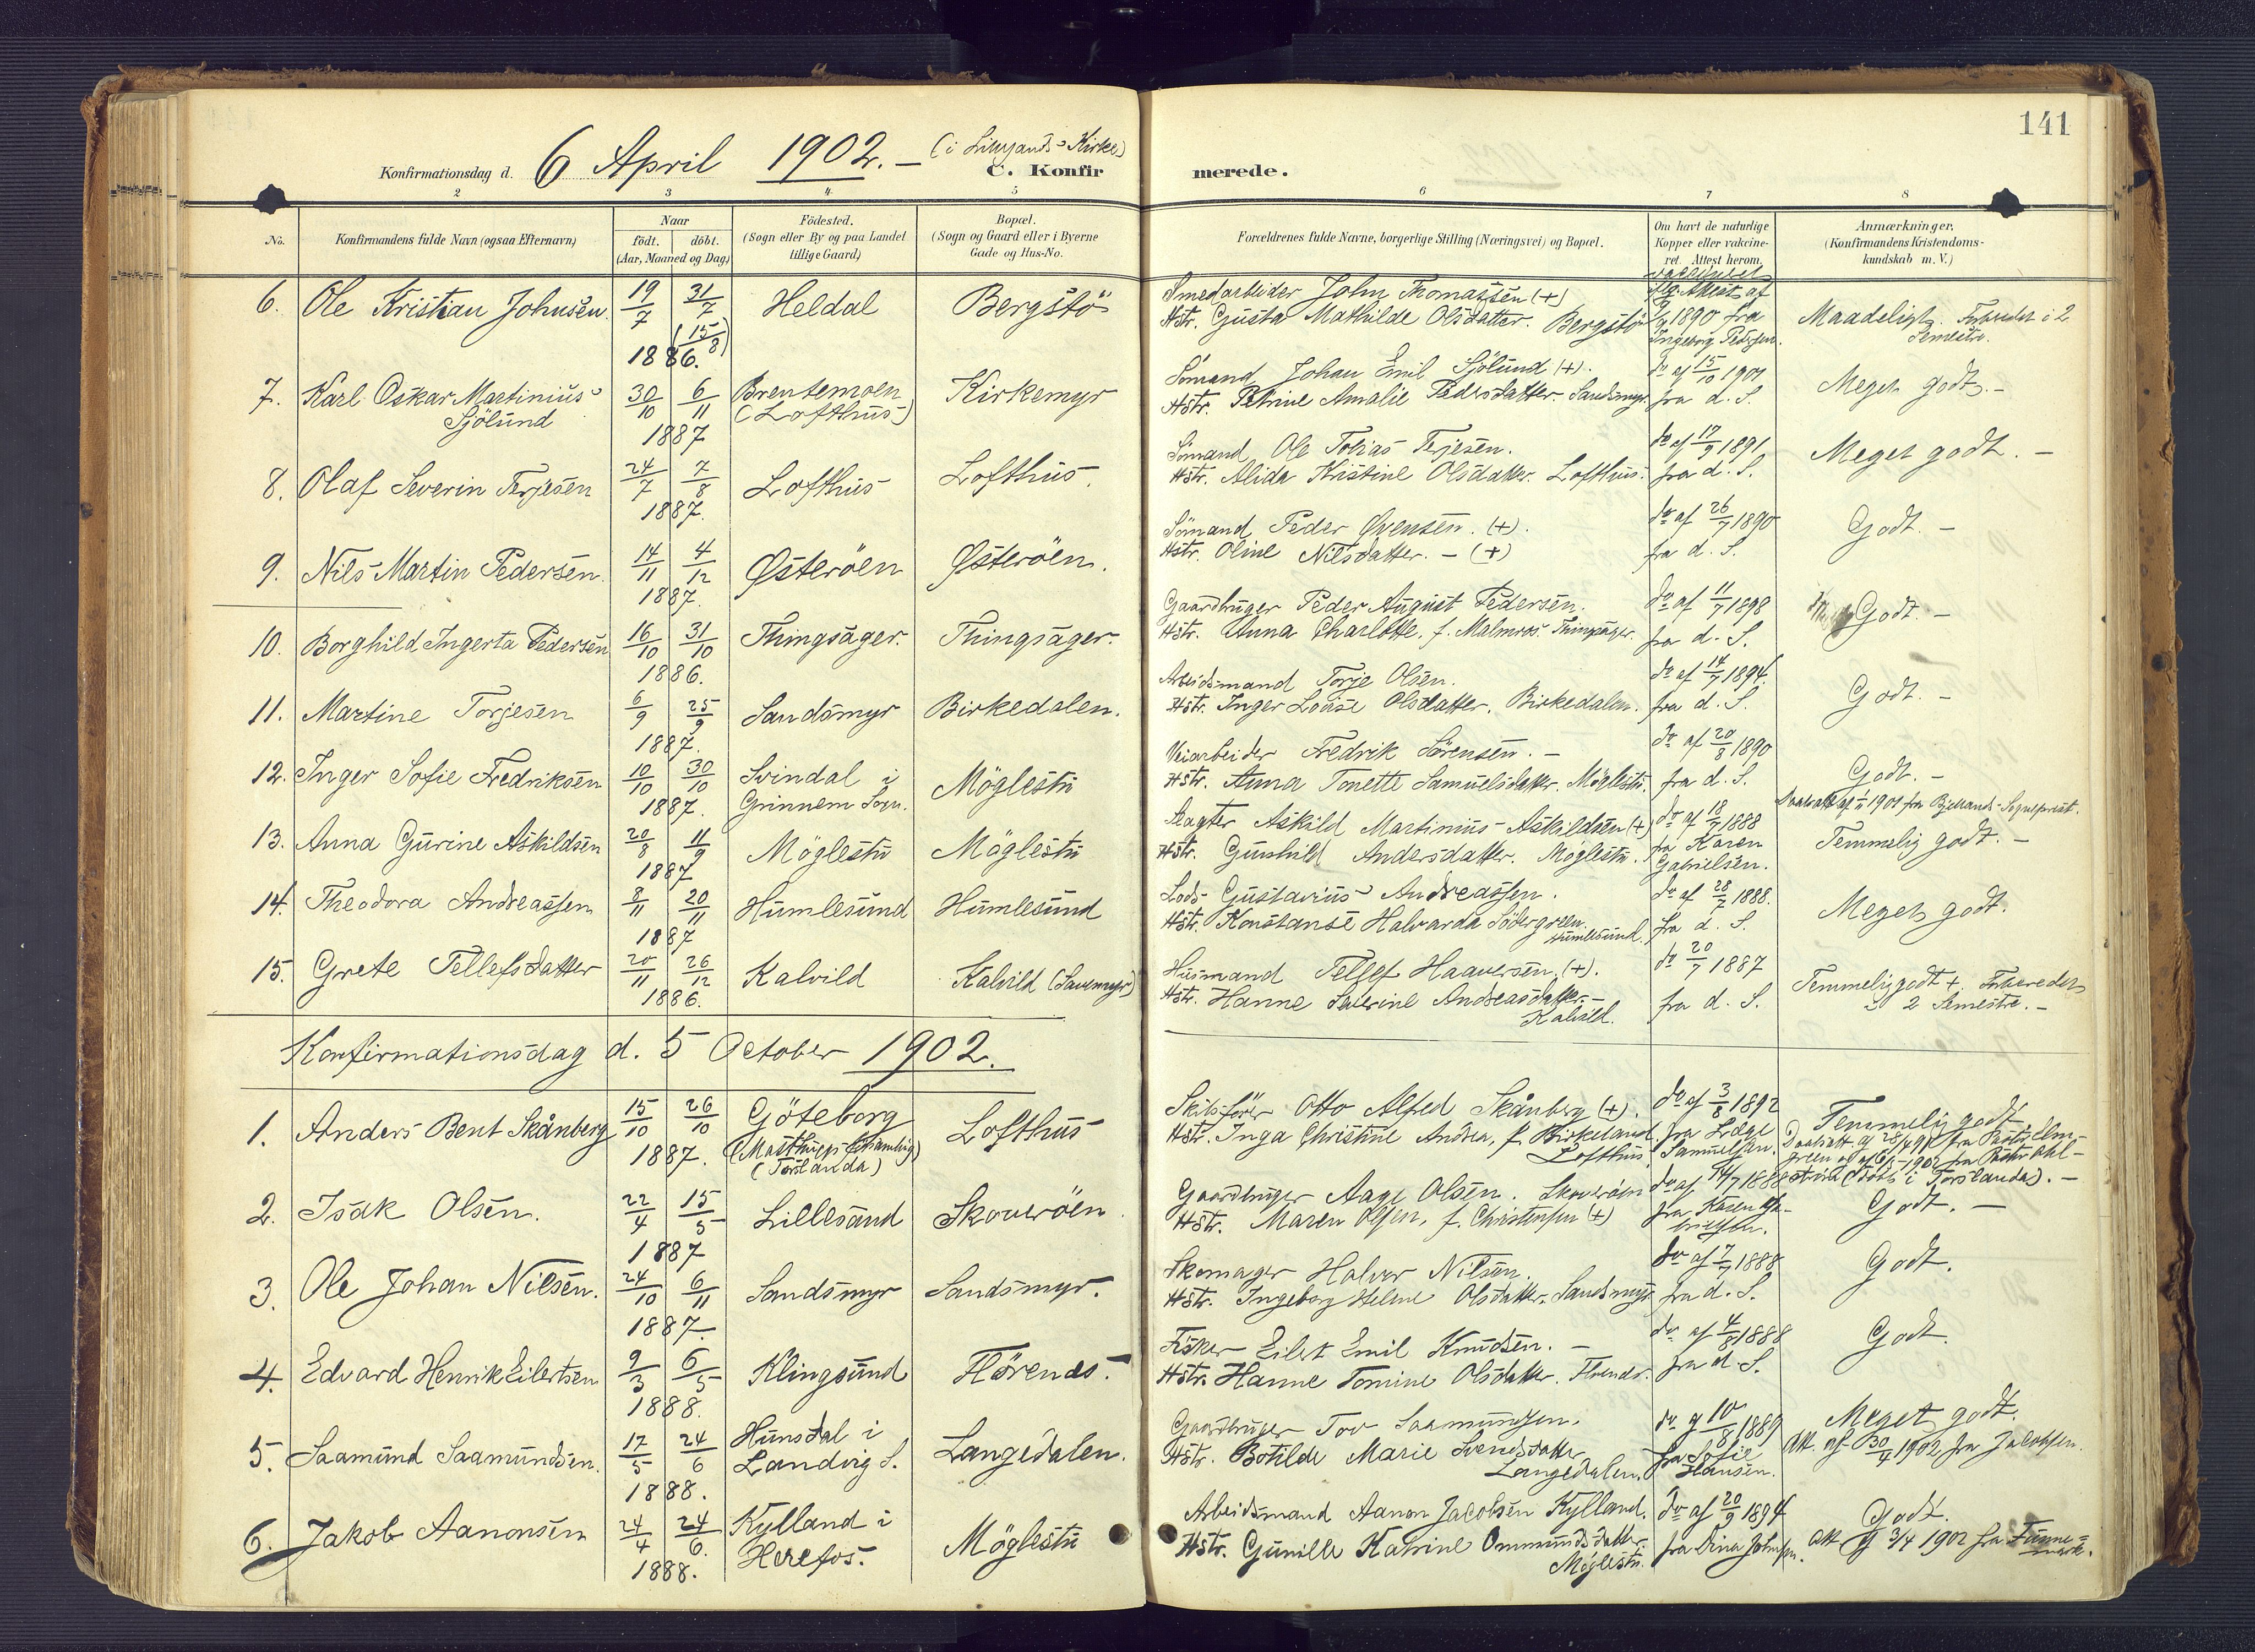 141
Konfirmationsdag d. 6 April 1902. – (i Kirke)
C. Konfirmerede.
2 3 4 5 6 7 8
No.
Konfirmandens fulde Navn (ogsaa Efternavn)
Naar
födt. döbt.
(Aar, Maaned og Dag)
Födested.
(Sogn eller By og paa Landet
tillige Gaard)
Bopæl.
(Sogn og Gaard eller i Byerne
Gade og Hus-No.
Forældrenes fulde Navne, borgerlige Stilling (Næringsvei) og Bopæl.
Om havt de naturlige
Kopper eller vakcine-
ret. Attest herom.
Anmærkninger.
(Konfirmandens Kristendoms-
kundskab m. V.)
6. Ole Kristian Johnsen. 19/7 31/7 (15/8) 1886. Heldal Bergstö
Smedarbeider John Thomassen (+)
Hstr. Gusta Mathilde Olsdatter. Bergstö
vaccineret
Attest af
1890 fra
Ingeborg Pedersen.
Maadeligt. Forberedt i 2
Semestre.
7. Karl Oskar Martinius
Sjölund
30/10 6/11 1887 Brentemoen
(Lofthus) Kirkemyr
Sömand Johan Emil Sjölund (+).
Hstr. Petrine Amalie Pedersdatter Sandsmyr.
do af 15/10 1901
fra d. S.
Meget godt. –
8. Olaf Severin Terjesen 24/7 7/8 1887. Lofthus Lofthus.
Sömand Ole Tobias Terjesen.
Hstr. Alida Kristine Olsdatter. Lofthus.
do af 17/9 1891
fra d. S.
Meget godt. –
9. Nils Martin Pedersen. 14/11 4/12 1887. Østeröen Østeröen.
Sömand Peder Evensen. (+).
Hstr. Oline Nilsdatter. – (+)
do af 26/7 1890
fra d. S.
Godt. –
10. Borghild Ingerta Pedersen 16/10 31/10 1886. Thingsager. Thingsager.
Gaardbruger Peder August Pedersen.
Hstr. Anna Charlotte, f. Malmros. Thingsager.
do af 11/7 1898
fra d. S.
Godt. –
11. Martine Torjesen 6/9 25/9 1887. Sandsmyr Birkedalen.
Arbeidsmand Torje Olsen.
Hstr. Inger Loüise Olsdatter. Birkedalen.
do af 14/7 1894.
fra d. S.
Godt. –
12. Inger Sofie Fredriksen 10/10 30/10 1887. Svindal i
Grinnem Sogn. Möglestü
Veiarbeider Fredrik Sörensen. –
Hstr. Anna Tonette Samuelsdatter. Möglestü.
do af 20/8 1890
fra d. S.
Godt. –
Daabsatt af 1/11 1901 fra Bjellands Sognepræst.
13. Anna Gurine Askildsen 20/8 11/9 1887 Möglestü Möglestü
Aagter Askild Martinius Askildsen (+)
Hstr. Gunhild Andersdatter. Möglestü.
do af 18/7 1888
fra Karen
Gabrielsen.
Temmelig godt. –
14. Theodora Andreassen 8/11 20/11 1887 Humlesund Humlesund
Lods Gustavius Andreassen.
Hstr. Konstanse Halvarda Södergreen.
Humlesund.
do af 28/7 1888.
fra d. S.
Meget godt.
15. Grete Tellefsdatter 20/11 26/12 1886. Kalvild Kalvild
Husmand Tellef Haaversen. (+).
Hstr. Hanne Severine Andreasdatter. –
Kalvild.
do 20/7 1887
fra d. S.
Temmelig godt +. Forberedet
2 Semestre. –
Konfirmationsdag d. 5 October 1902.
1. Anders Bent Skånberg 15/10 26/10 1887. Göteborg
(Torslanda) Lofthus
Skibsförer Otto Alfred Skånberg (+).
Hstr. Inga Christine Andrea, f. Birkeland
Lofthus.
do af 3/8 1892
Samuelsen.
Temmelig godt
(Döbt i Torslanda). –
2. Isak Olsen. 22/4 15/5 1887 Lillesand Skoveröen
Gaardbruger Aage Olsen. Skoveröen
Hstr. Maren Olsen, f. Christensen (+)
do af 14/7 1888
fra Karen Ga-
brielsen.
Godt. –
3. Ole Johan Nilsen. 24/10 6/11 1887. Sandsmyr Sandsmyr.
Skomager Halvor Nilsen.
Hstr. Ingeborg Helene Olsdatter. Sandsmyr
do af 7/7 1888
fra d. S.
Godt.
4. Edvard Henrik Eilertsen 9/3 6/5 1888. Klingsund Flörenes.
Fisker Eilert Emil Knudsen. –
Hstr. Hanne Tomine Olsdatter.
do af 4/8 1888
fra d. S.
Godt.
5. Saamund Saamundsen. 17/5 24/6 1888. Hunsdal i
Landvig S. Langedalen.
Gaardbruger Tov Saamundsen.
Hstr. Botilde Marie Svendsdatter
Langedalen.
do af 10/8 1889
fra Sofie
Hansen.
Meget godt.
Att. af 30/4 1902 fra Jacobsen.
6. Jakob Aanonsen 24/4 24/6. 1888. Kylland i
Herefos. Möglestü
Arbeidsmand Aanon Jacobsen Kylland.
Hstr. Gunille Katrine Ommundsdatter.
Möglestü.
do af 20/9 1894
fra Dina Johnsen.
Godt.
Att af 3/4 1902 fra